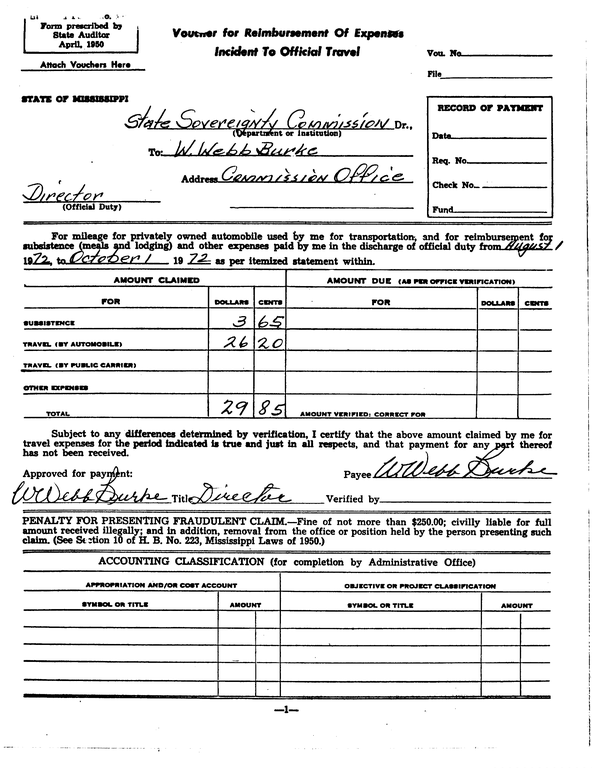 Form prescribed by
State Auditor
April, 1950
Attach Vouchers Here
Voucher for Reimbursement Of Expenses
Incident To Official Travel
Vou. No.
File
STATE OF MISSISSIPPI
State Sovereignty Commission Dr.,
(Department or Institution)
To: W. Webb Burke
Address Commission Office
Director
(Official Duty)
RECORD OF PAYMENT
Date
Req. No.
Check No.
Fund
For mileage for privately owned automobile used by me for transportation, and for reimbursement for
subsistence (meals and lodging) and other expenses paid by me in the discharge of official duty from August 1
1972, to October 1 1972 as per itemized statement within.
AMOUNT CLAIMED AMOUNT DUE (AS PER OFFICE VERIFICATION)
FOR DOLLARS CENTS FOR DOLLARS CENTS
SUBSISTENCE 3 65
TRAVEL (BY AUTOMOBILE) 26 20
TRAVEL (BY PUBLIC CARRIER)
OTHER EXPENSES
TOTAL 29 85 AMOUNT VERIFIED: CORRECT FOR
Subject to any differences determined by verification, I certify that the above amount claimed by me for
travel expenses for the period indicated is true and just in all respects, and that payment for any part thereof
has not been received.
Approved for payment: Payee W Webb Burke
W Webb Burke Title Director Verified by
PENALTY FOR PRESENTING FRAUDULENT CLAIM.—Fine of not more than $250.00; civilly liable for full
amount received illegally; and in addition, removal from the office or position held by the person presenting such
claim. (See Section 10 of H. B. No. 223, Mississippi Laws of 1950.)
ACCOUNTING CLASSIFICATION (for completion by Administrative Office)
APPROPRIATION AND/OR COST ACCOUNT OBJECTIVE OR PROJECT CLASSIFICATION
SYMBOL OR TITLE AMOUNT SYMBOL OR TITLE AMOUNT
—1—